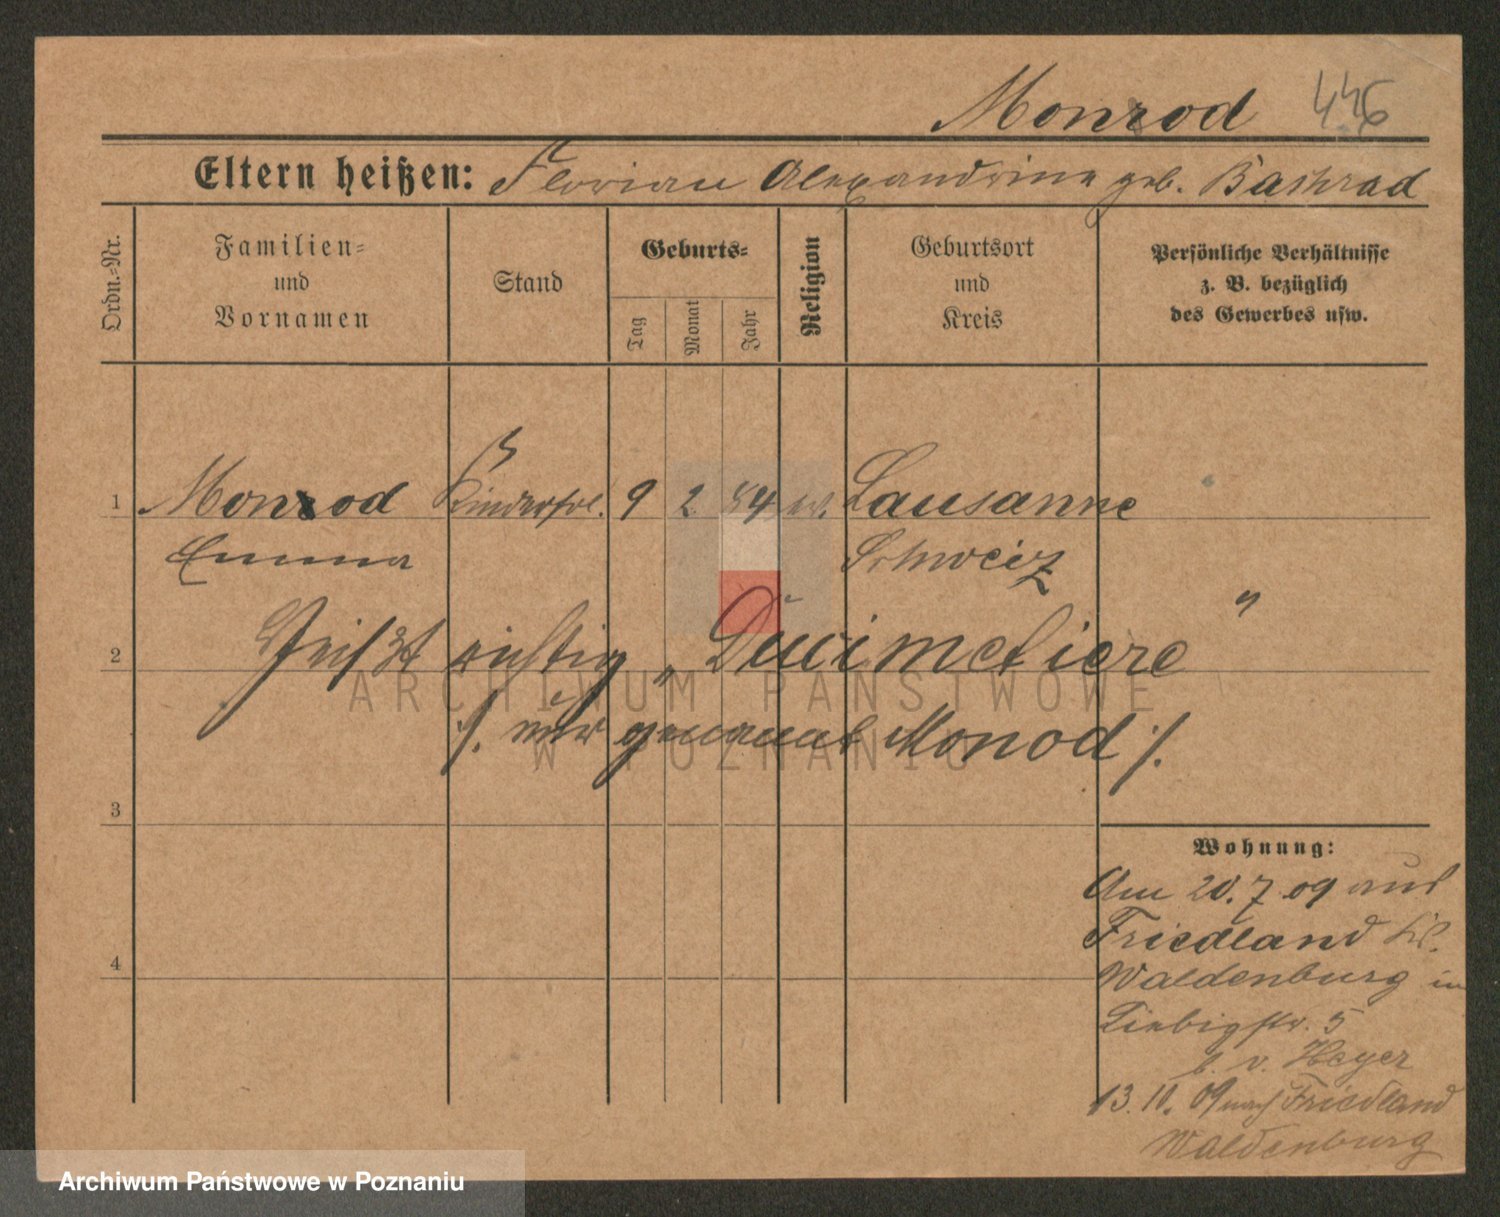 Monrod 446
Eltern heißen: Florian Alexandrine geb. Bashrad
Ordn.-Nr.
Familien-
und
Vornamen
Stand
Geburts-
Tag
Monat
Jahr
Religion
Geburtsort
und
Kreis
Persönliche Verhältnisse
z. B. bezüglich
des Gewerbes usw.
1 Monrod Kinderfrl. 9 2 84 ev. Lausanne
Emma Schweiz
2 Heißt richtig „Ducimetiere"
/. nur genannt Monod ./.
3
4
Wohnung:
Am 20.7.09 aus
Friedland
Waldenburg in
Liebigstr. 5
b. v. Heyer
13.10.09 nach Friedland
Waldenburg
ARCHIWUM PAŃSTWOWE
W POZNANIU
Archiwum Państwowe w Poznaniu